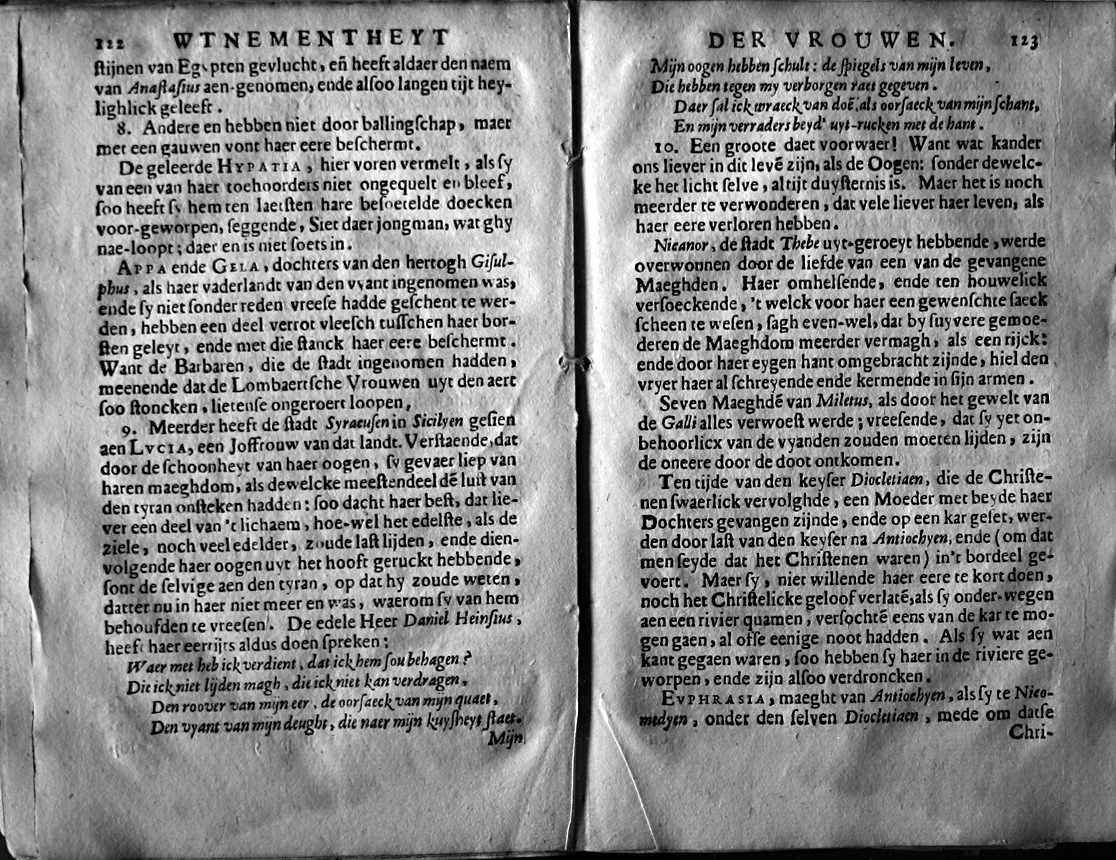 122 WTNEMENTHEYT
ſtijnen van Egypten gevlucht, en̄ heeft aldaer den naem
van Anaſtaſius aen-genomen, ende alſoo langen tijt hey-
lighlick geleeft.
8. Andere en hebben niet door ballingſchap, maer
met een gauwen vont haer eere beſchermt.
De geleerde HYPATIA, hier voren vermelt, als ſy
van een van haer toehoorders niet ongequelt en bleef,
ſoo heeft ſy hem ten laetſten hare beſoetelde doecken
voor-geworpen, ſeggende, Siet daer jongman, wat ghy
nae-loopt; daer en is niet ſoets in.
APPA ende GELA, dochters van den hertogh Giſul-
phus, als haer vaderlandt van den vyant ingenomen was,
ende ſy niet ſonder reden vreeſe hadde geſchent te wer-
den, hebben een deel verrot vleeſch tuſſchen haer bor-
ſten geleyt, ende met die ſtanck haer eere beſchermt.
Want de Barbaren, die de ſtadt ingenomen hadden,
meenende dat de Lombaertſche Vrouwen uyt den aert
ſoo ſtoncken, lietenſe ongeroert loopen,
9. Meerder heeft de ſtadt Syracuſen in Sicilyen geſien
aen LVCIA, een Joffrouw van dat landt. Verſtaende, dat
door de ſchoonheyt van haer oogen, ſy gevaer liep van
haren maeghdom, als dewelcke meeſtendeel dē luſt van
den tyran onſteken hadden: ſoo dacht haer beſt, dat lie-
ver een deel van 't lichaem, hoe-wel het edelſte, als de
ziele, noch veel edelder, zoude laſt lijden, ende dien-
volgende haer oogen uyt het hooft geruckt hebbende,
ſont de ſelvige aen den tyran, op dat hy zoude weten,
datter nu in haer niet meer en was, waerom ſy van hem
behoufden te vreeſen. De edele Heer Daniel Heinſius,
heeft haer eertijts aldus doen ſpreken:
Waer met heb ick verdient, dat ick hem ſou behagen?
Die ick niet lijden magh, die ick niet kan verdragen,
Den roover van mijn eer, de oorſaeck van mijn quaet,
Den vyant van mijn deught, die naer mijn kuyſheyt ſtaet.
Mijn
DER VROUWEN. 123
Mijn oogen hebben ſchult: de ſpiegels van mijn leven,
Die hebben tegen my verborgen raet gegeven.
Daer ſal ick wraeck van doē, als oorſaeck van mijn ſchant,
En mijn verraders beyd' uyt-rucken met de hant.
10. Een groote daet voorwaer! Want wat kander
ons liever in dit levē zijn, als de Oogen: ſonder dewelc-
ke het licht ſelve, altijt duyſternis is. Maer het is noch
meerder te verwonderen, dat vele liever haer leven, als
haer eere verloren hebben.
Nicanor, de ſtadt Thebe uyt-geroeyt hebbende, werde
overwonnen door de liefde van een van de gevangene
Maeghden. Haer omhelſende, ende ten houwelick
verſoeckende, 't welck voor haer een gewenſchte ſaeck
ſcheen te weſen, ſagh even-wel, dat by ſuyvere gemoe-
deren de Maeghdom meerder vermagh, als een rijck:
ende door haer eygen hant omgebracht zijnde, hiel den
vryer haer al ſchreyende ende kermende in ſijn armen.
Seven Maeghdē van Miletus, als door het gewelt van
de Galli alles verwoeſt werde; vreeſende, dat ſy yet on-
behoorlicx van de vyanden zouden moeten lijden, zijn
de oneere door de doot ontkomen.
Ten tijde van den keyſer Diocletiaen, die de Chriſte-
nen ſwaerlick vervolghde, een Moeder met beyde haer
Dochters gevangen zijnde, ende op een kar geſet, wer-
den door laſt van den keyſer na Antiochyen, ende (om dat
men ſeyde dat het Chriſtenen waren) in't bordeel ge-
voert. Maer ſy, niet willende haer eere te kort doen,
noch het Chriſtelicke geloof verlatē, als ſy onder-wegen
aen een rivier quamen, verſochtē eens van de kar te mo-
gen gaen, al offe eenige noot hadden. Als ſy wat aen
kant gegaen waren, ſoo hebben ſy haer in de riviere ge-
worpen, ende zijn alſoo verdroncken.
EVPHRASIA, maeght van Antiochyen, als ſy te Nico-
medyen, onder den ſelven Diocletiaen, mede om datſe
Chri-